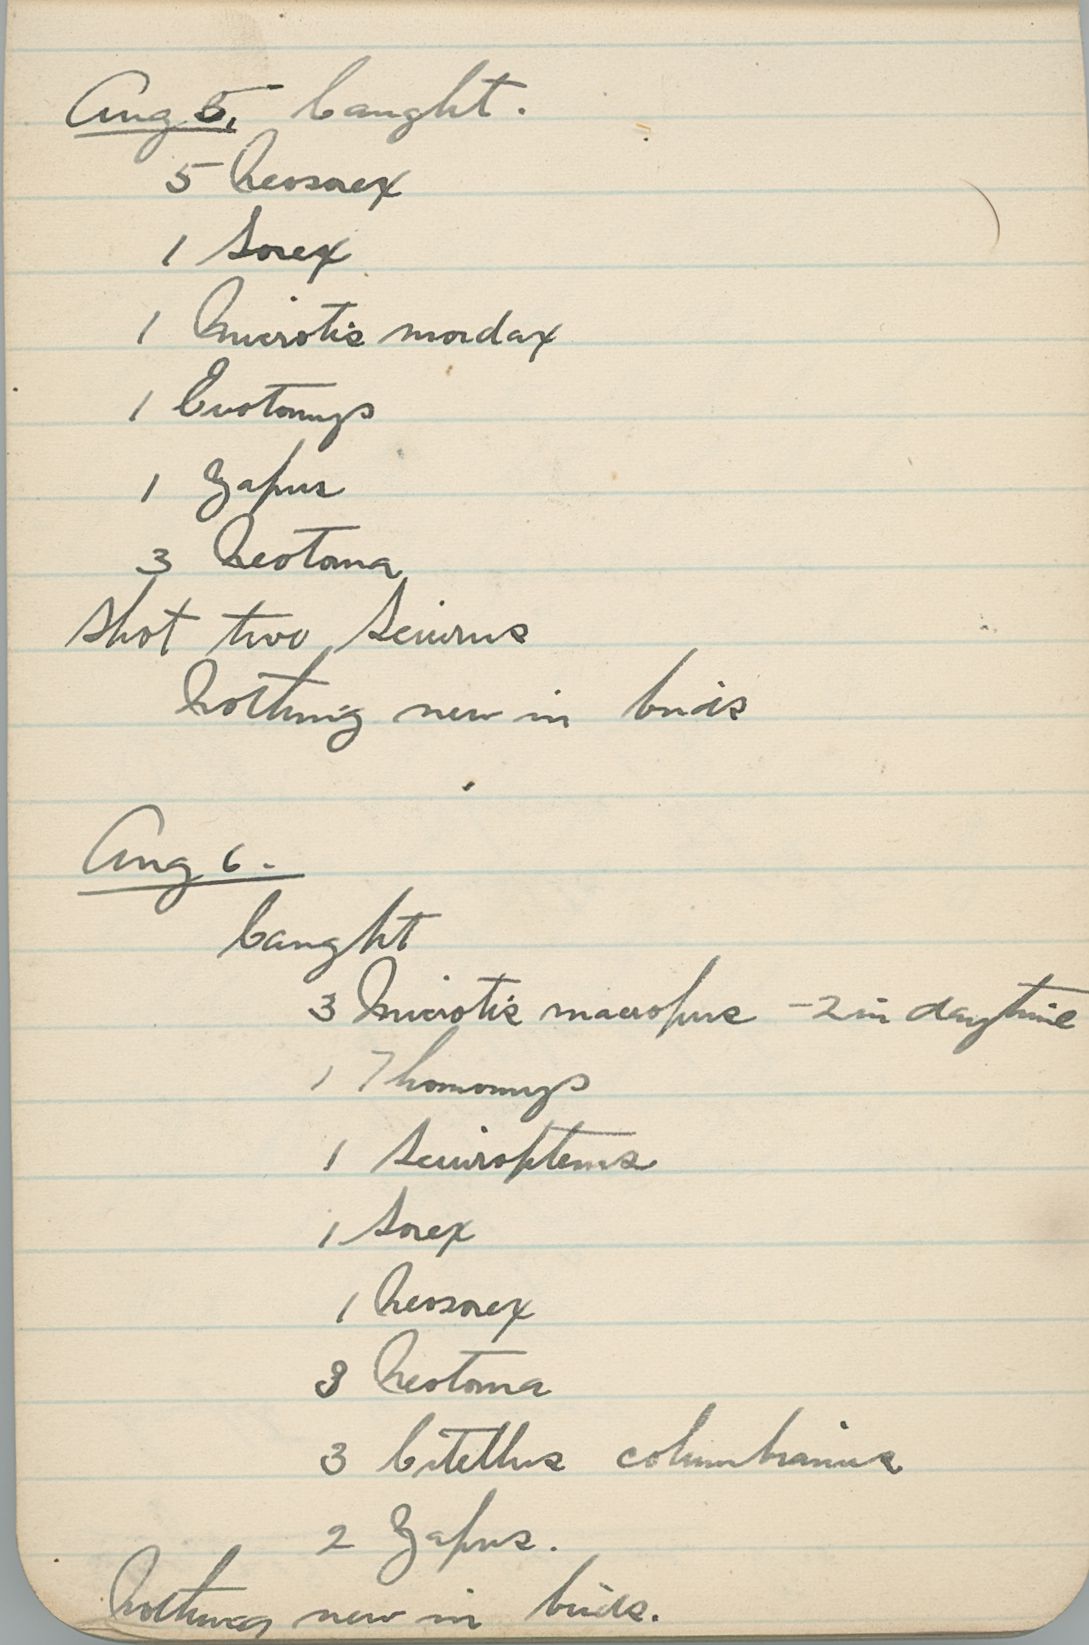 Aug 5, Caught.
5 Neosorex
1 Sorex
1 Microtis mordax
1 Evotomys
1 Zapus
3 Neotoma
Shot two Sciurus
Nothing new in birds
Aug 6.
Caught
3 Microtis macropus - 2 in daytime
1 Thomomys
1 Sciuropterus
1 Sorex
1 Neosorex
3 Neotoma
3 Citellus columbianus
2 Zapus.
Nothing new in birds.